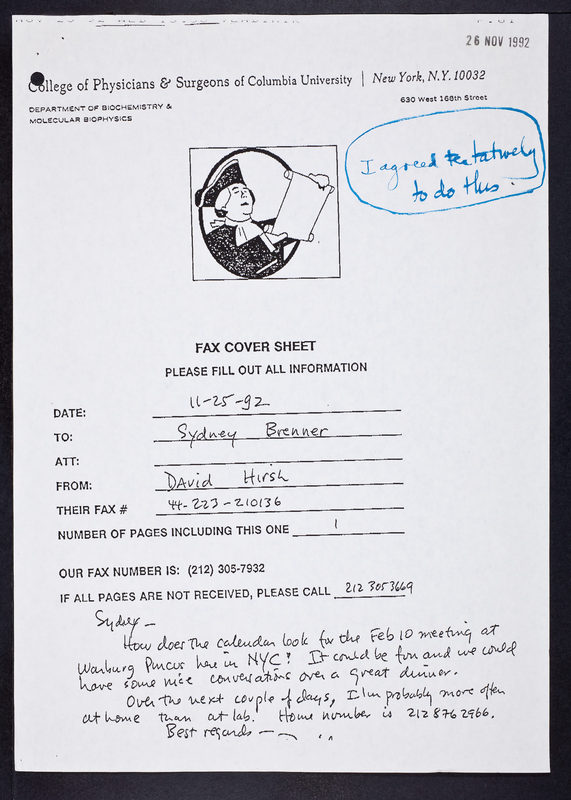 26 NOV 1992
College of Physicians & Surgeons of Columbia University | New York, N.Y. 10032
DEPARTMENT OF BIOCHEMISTRY &
MOLECULAR BIOPHYSICS
630 West 168th Street
I agreed tentatively
to do this.
FAX COVER SHEET
PLEASE FILL OUT ALL INFORMATION
DATE: 11-25-92
TO: Sydney Brenner
ATT:
FROM: David Hirsh
THEIR FAX # 44-223-210136
NUMBER OF PAGES INCLUDING THIS ONE 1
OUR FAX NUMBER IS: (212) 305-7932
IF ALL PAGES ARE NOT RECEIVED, PLEASE CALL 212 305 3669
Sydney —
How does the calendar look for the Feb 10 meeting at
Warburg Pincus here in NYC? It could be fun and we could
have some nice conversations over a great dinner.
Over the next couple of days, I'm probably more often
at home than at lab. Home number is 212 876 2966.
Best regards —